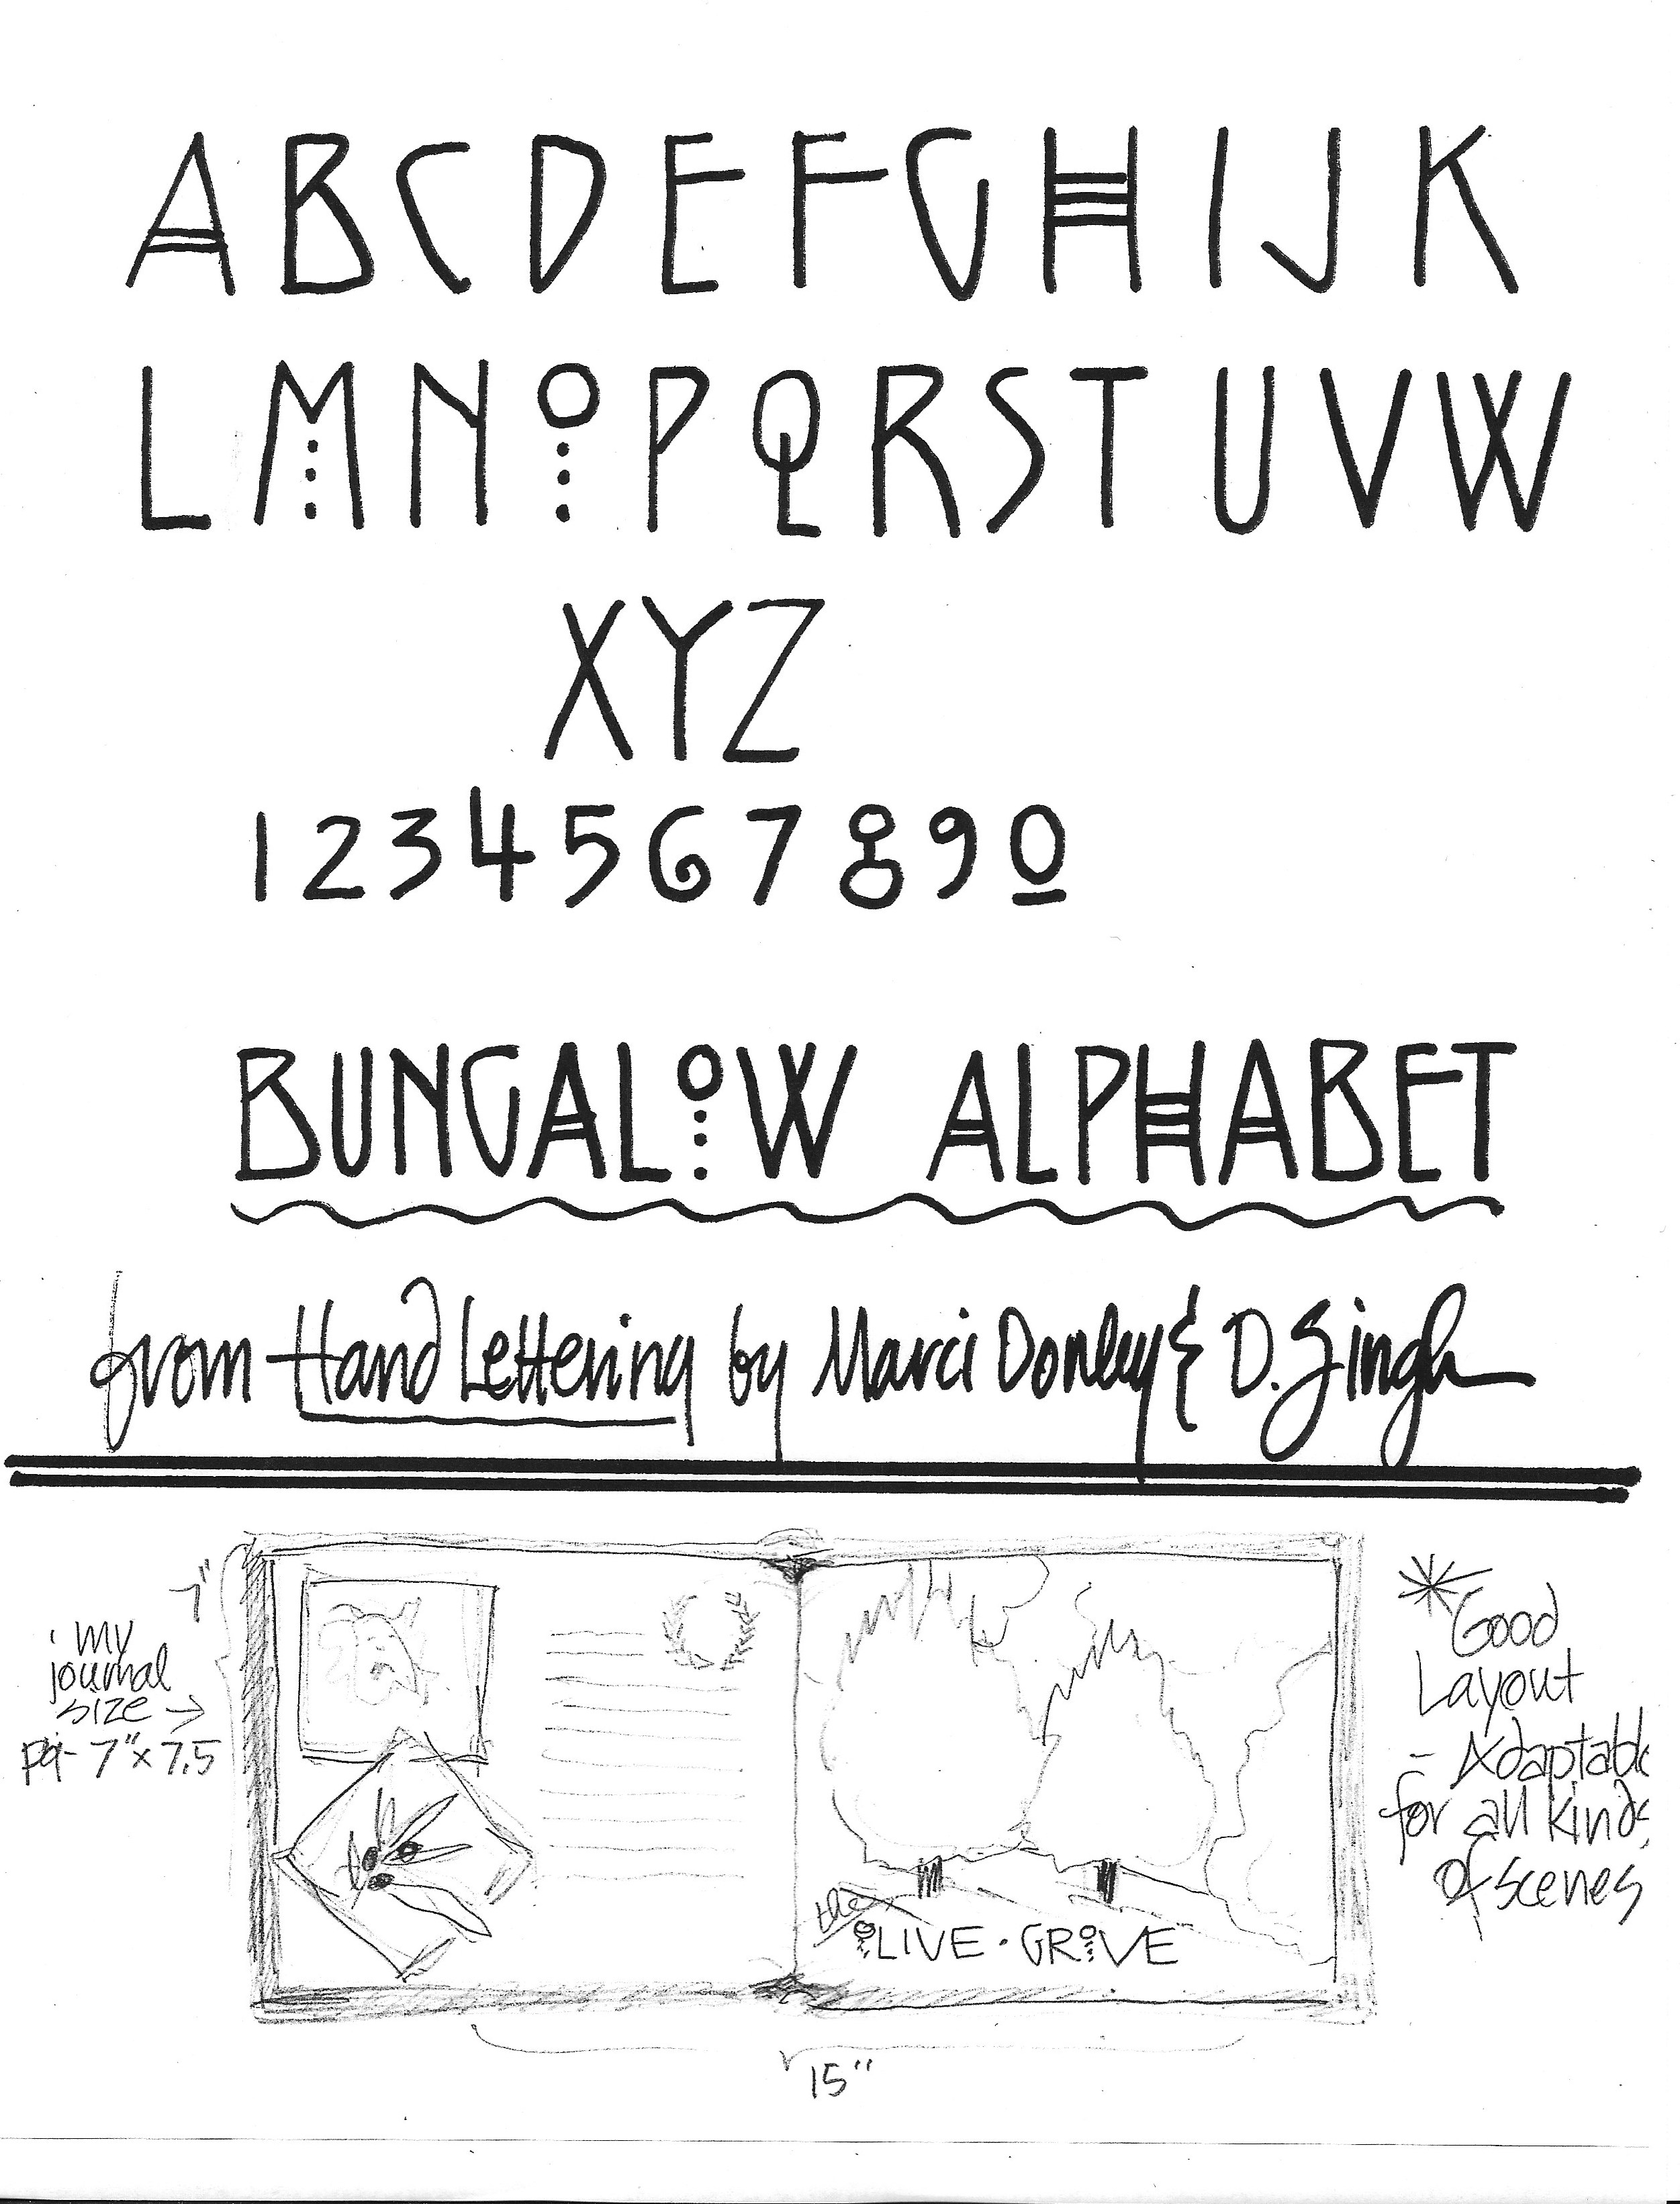 ABCDEFGHIJK
LMNOPQRSTUVW
XYZ
1234567890
BUNGALOW ALPHABET
from Hand Lettering by Marci Donley & D. Singh
7"
my
journal
size →
pg- 7"x 7.5
the
OLIVE · GROVE
15"
Good
Layout
- Adaptable
for all kinds
of scenes